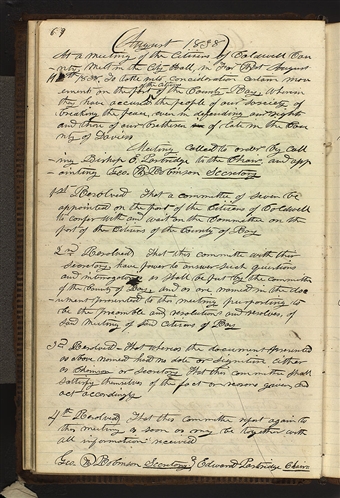 69
(August 1838)
At a meeting of the Citizens of Caldwell Coun
ty, Met in the City Hall, in Far West August
1838, To take into consideration certain move
of the citizens
ement on the part of the County Ray, Wherein
they have accused the people of our Society of
breaking the peace, even in defending our rights
and those of our Brethren of late in the Coun
ty of Daviess
Meeting called to order by call
-ing Bishop E. Partridge to the Chair, and app
-ointing Geo W Robinson Secretary
1st Resolved That a committee of seven be
appointed on the part of the Citizens of Caldwell
to confer with and wait on the Committee on the
part of the Citizens of the County of Ray
2nd Resolved, That this committee with their
Secretary have power to answer such questions
and interrogatories as shall be put by the committee
of the County of Ray, and as are named in the doc
-ument presented to this meeting purporting to
be the preamble and resolutions and resolves, of
said meeting of said Citizens of Ray
3d Resolved - That whereas the document presented
as above named had no date or signature either
as Chairman or Secretary That this committee shall
satisfy themselves of the fact or reasons given, &
act accordingly
4th Resolved, That this committee report again to
this meeting as soon as may be together with
all information received
Geo W Robinson Secretary Edward Partridge Chairn